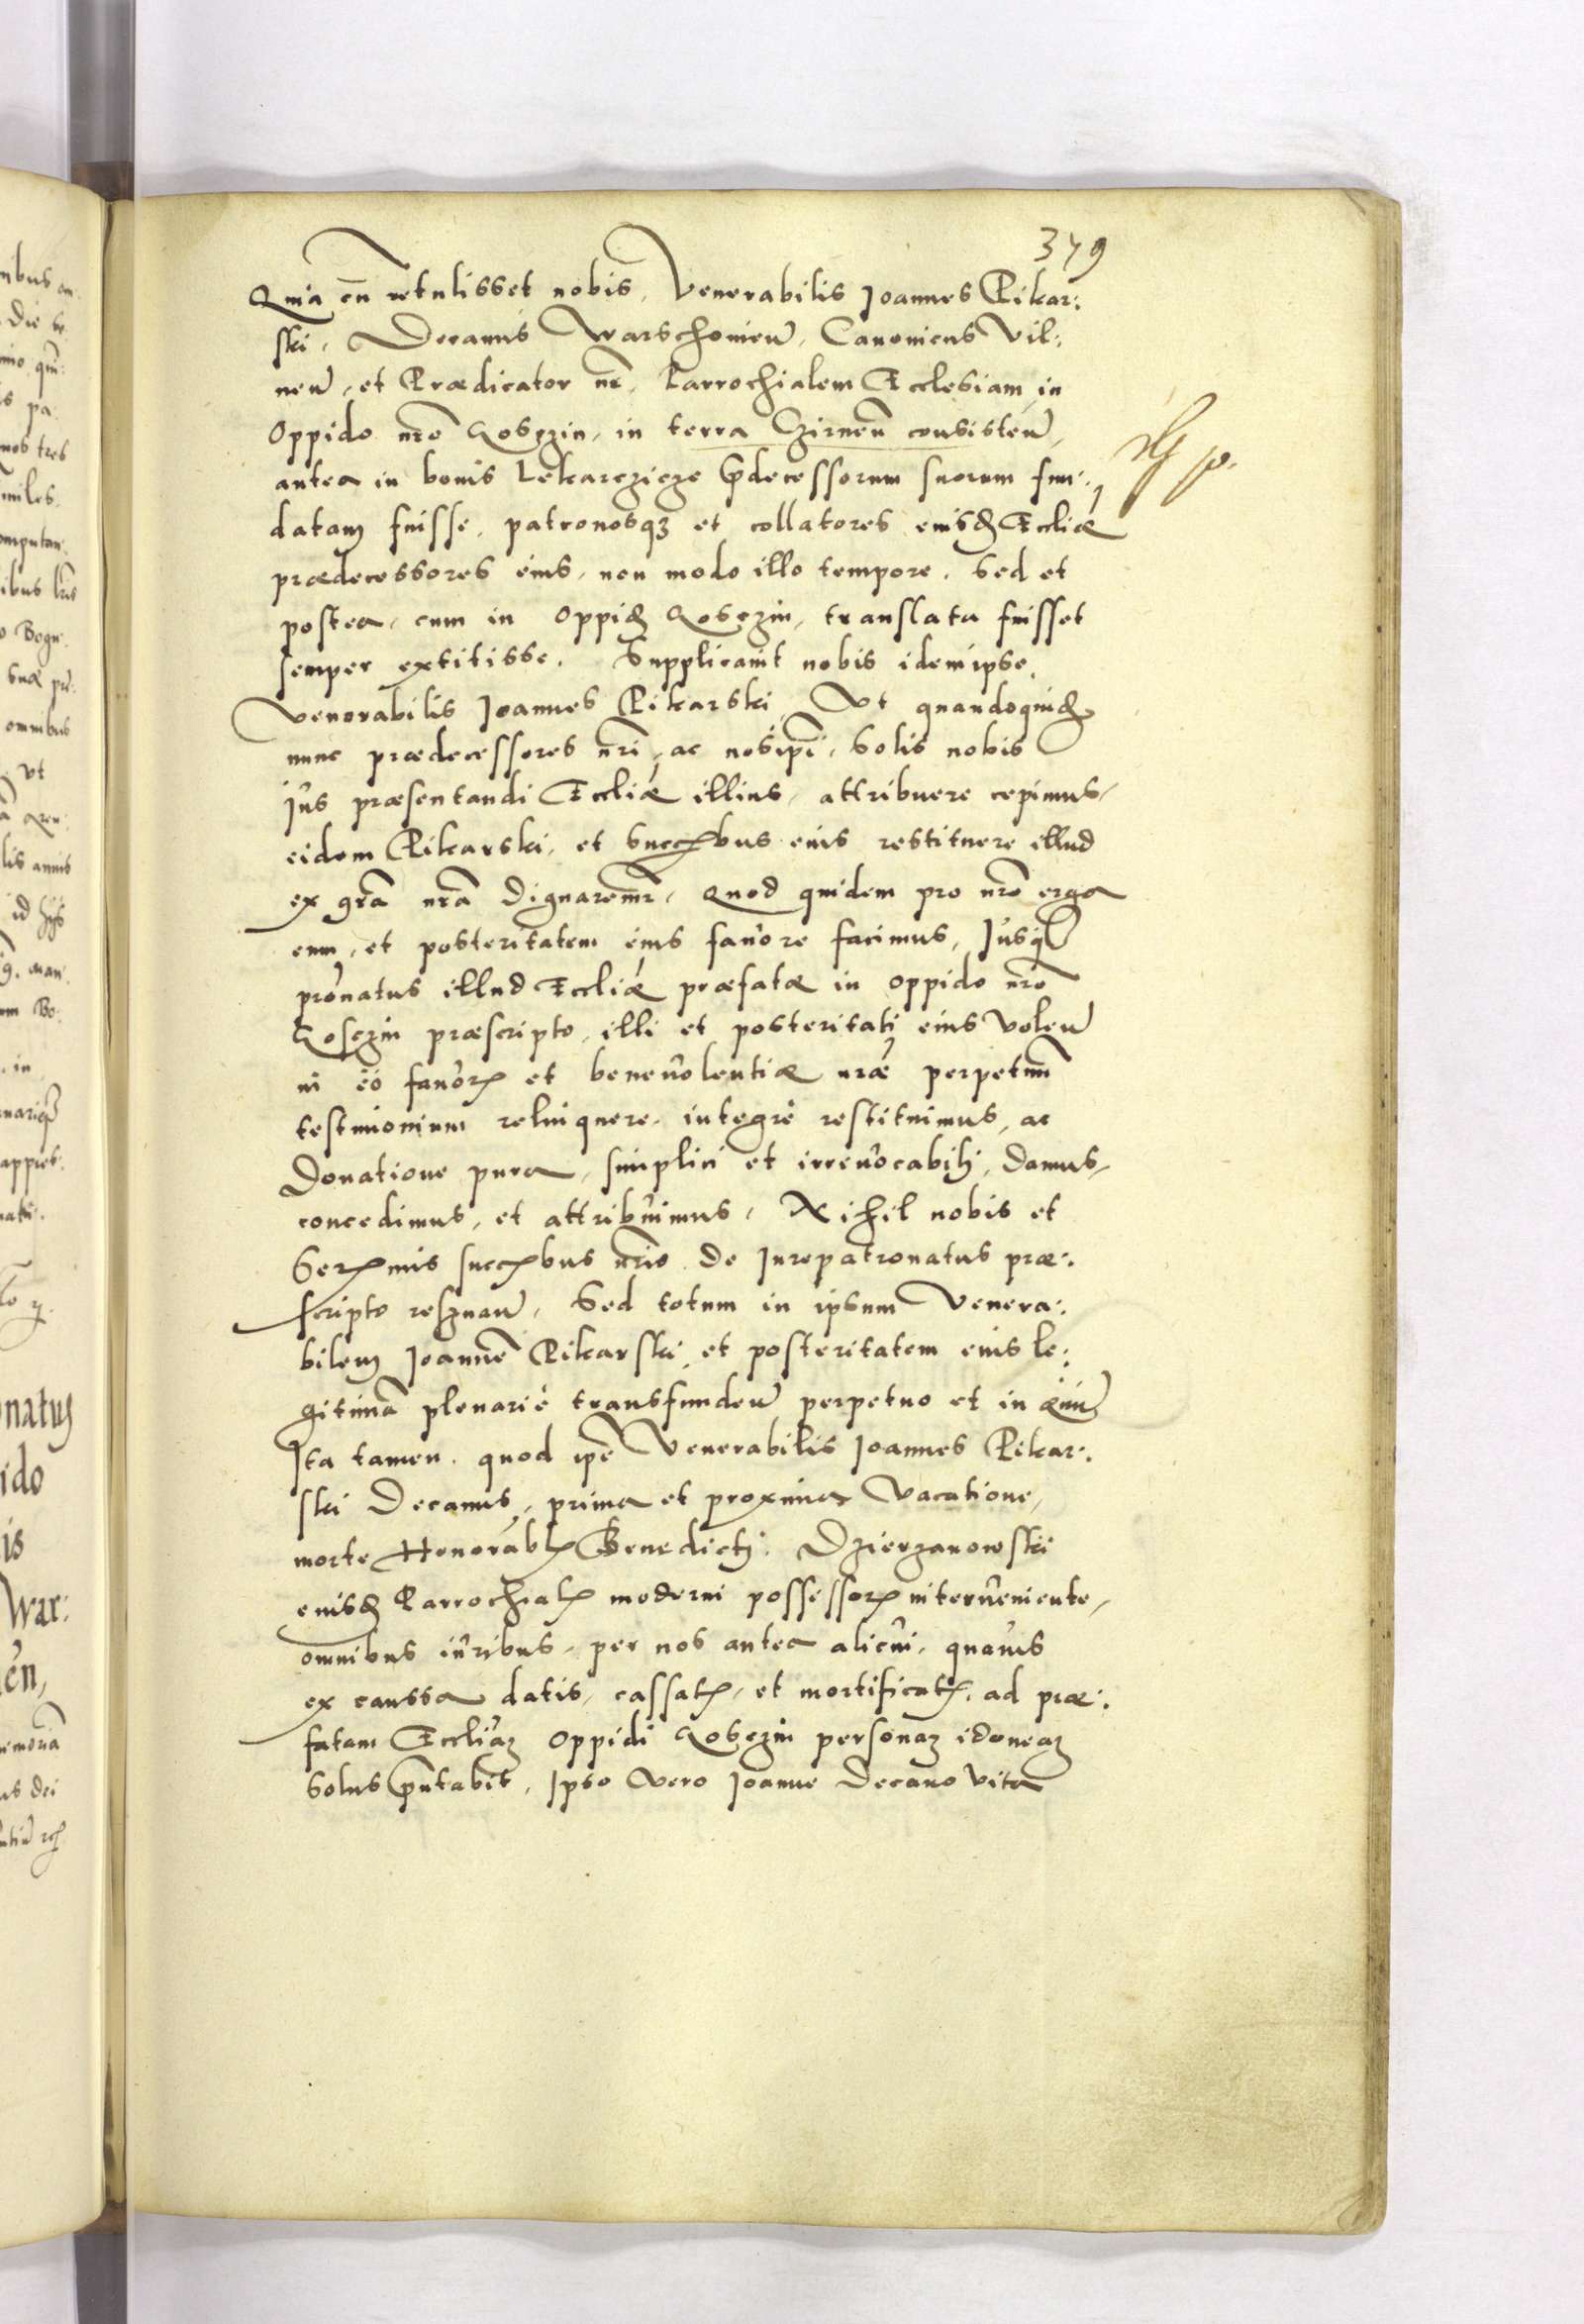 379
Quia cũ retulisset nobis, Venerabilis Joannes Pikar:
ski, Decanus Warschouień, Canonicus Vil:
neń, et Prædicator nr̃, Parrochialem Ecclesiam in
Oppido nr̃o Goszczin, in terra Czirneñ consisteñ,
antea in bonis Lekarczicze p̃decessorum suorum fun:
datam fuisse, patronosq3 et collatores eiusd Eccliæ
prædecessores eius, non modo illo tempore, sed et
postea, cum in oppid Gosczin, translata fuisset
semper extitisse. Supplicauit nobis idem ipse,
Venerabilis Joannes Pikarski, Vt quandoquid
nunc prædecessores nr̃i, ac nosip̃i, solis nobis
Jus præsentandi Eccliæ illius, attribuere cepimus,
eidem Pikarski, et succr̃bus eius restituere illud
ex gr̃a nr̃a dignaremr̃, Quod quidem pro nr̃o erga
eum, et posteritatem eius fauore facimus, Jusq
pr̃onatus illud Eccliæ præfatæ in oppido nr̃o
Gosczin præscripto, illi et posteritati eius Voleñ
in eo fauor̃ et beneuolentiæ nr̃æ perpetuũ
testimonium relinquere, integrè restituimus, ac
Donatione pura, simplici et irreuocabili, damus,
concedimus, et attribuimus, Nichil nobis et
Ser̃mis succr̃bus nr̃is de Jurepatronatus præ:
scripto resẽruañ, Sed totum in ipsum Venera:
bilem Joannẽ Pikarski, et posteritatem eius le:
gitimã plenariè transfundeñ perpetuo et in æuũ
Ita tamen, quod ip̃e Venerabilis Joannes Pikar:
ski Decanus, prima et proxima Vacatione,
morte Honorabl̃ Benedicti Dzierzanowski
eiusd Parrochial̃ moderni possessor̃ interueniente,
omnibus iuribus, per nos antea alicui, quauis
ex caussa datis, cassat̃, et mortificat̃, ad præ:
fatam Eccliam Oppidi Gosczin personam idoneam
solus p̃ntabit, Ipso Vero Joanne Decano Vita